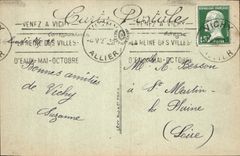 Carte Postale
VENEZ A VICHY
LA REINE DES VILLES
D'EAUX-MAI-OCTOBRE
ALLIER
VICHY
LA REINE DES VILLES
D'EAUX-MAI-OCTOBRE
ALLIER
Bonnes amitiés
de Vichy
Suzanne
Mr A. Besson
à St Martin-
la Plaine
(Loire)